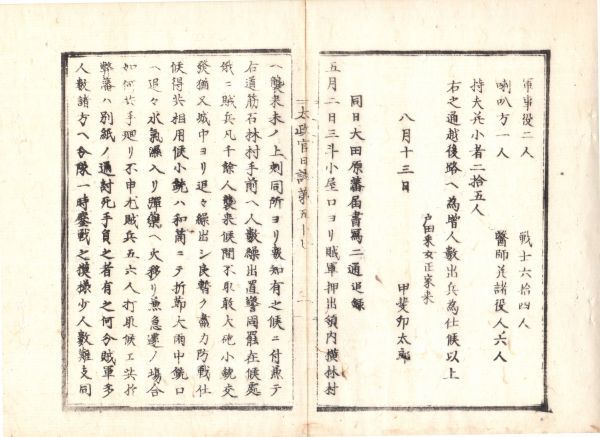 軍事役二人　戦士六拾四人
喇叭方一人　醫師並諸役人六人
持夫兵小者二拾五人
右之通越後路ヘ為増人数出兵為仕候以上
戸田采女正家来
八月十三日　甲斐卯太郎
同日大田原藩届書寫二通追録
五月二日三斗小屋口ヨリ賊軍押出領内横林村
太政官日誌第五十
ヘ襲来未ノ上刻同所ヨリ報知有之候ニ付兼テ
右道筋石林村手前ヘ人数繰出置警固罷在候處
俄ニ賊兵凡千餘人襲来候間不取敢大砲小銃交
發猶又城中ヨリ追々繰出シ良暫ク盡力防戦仕
候得共相用候小銃ハ和筒ニテ折節大雨中銃口
ヘ追々水氣濕入リ彈藥ヘ火移リ兼急遽ノ場合
如何共手廻リ不申尤賊兵五六人打取候エ共於
弊藩ハ別紙ノ通討死手負之者有之何分賊軍多
人数諸方ヘ分隊一時鏖戦之摸様少人数難支同